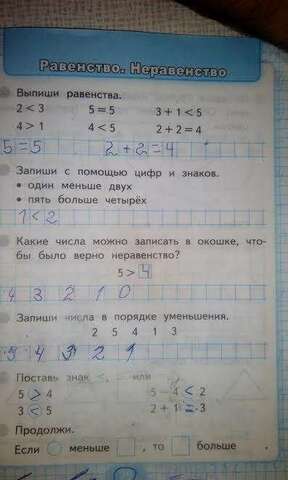 Равенство. Неравенство
Выпиши равенства.
2 < 3 5 = 5 3 + 1 < 5
4 > 1 4 < 5 2 + 2 = 4
5 = 5 2 + 2 = 4
Запиши с помощью цифр и знаков.
• один меньше двух
• пять больше четырёх
1 < 2
Какие числа можно записать в окошке, что-
бы было верно неравенство?
5 > 4
4 3 2 1 0
Запиши числа в порядке уменьшения.
2 5 4 1 3
5 4 3 2 1
Поставь знак <, или
5 > 4 5 - 4 < 2
3 < 5 2 + 1 = 3
Продолжи.
Если меньше , то больше